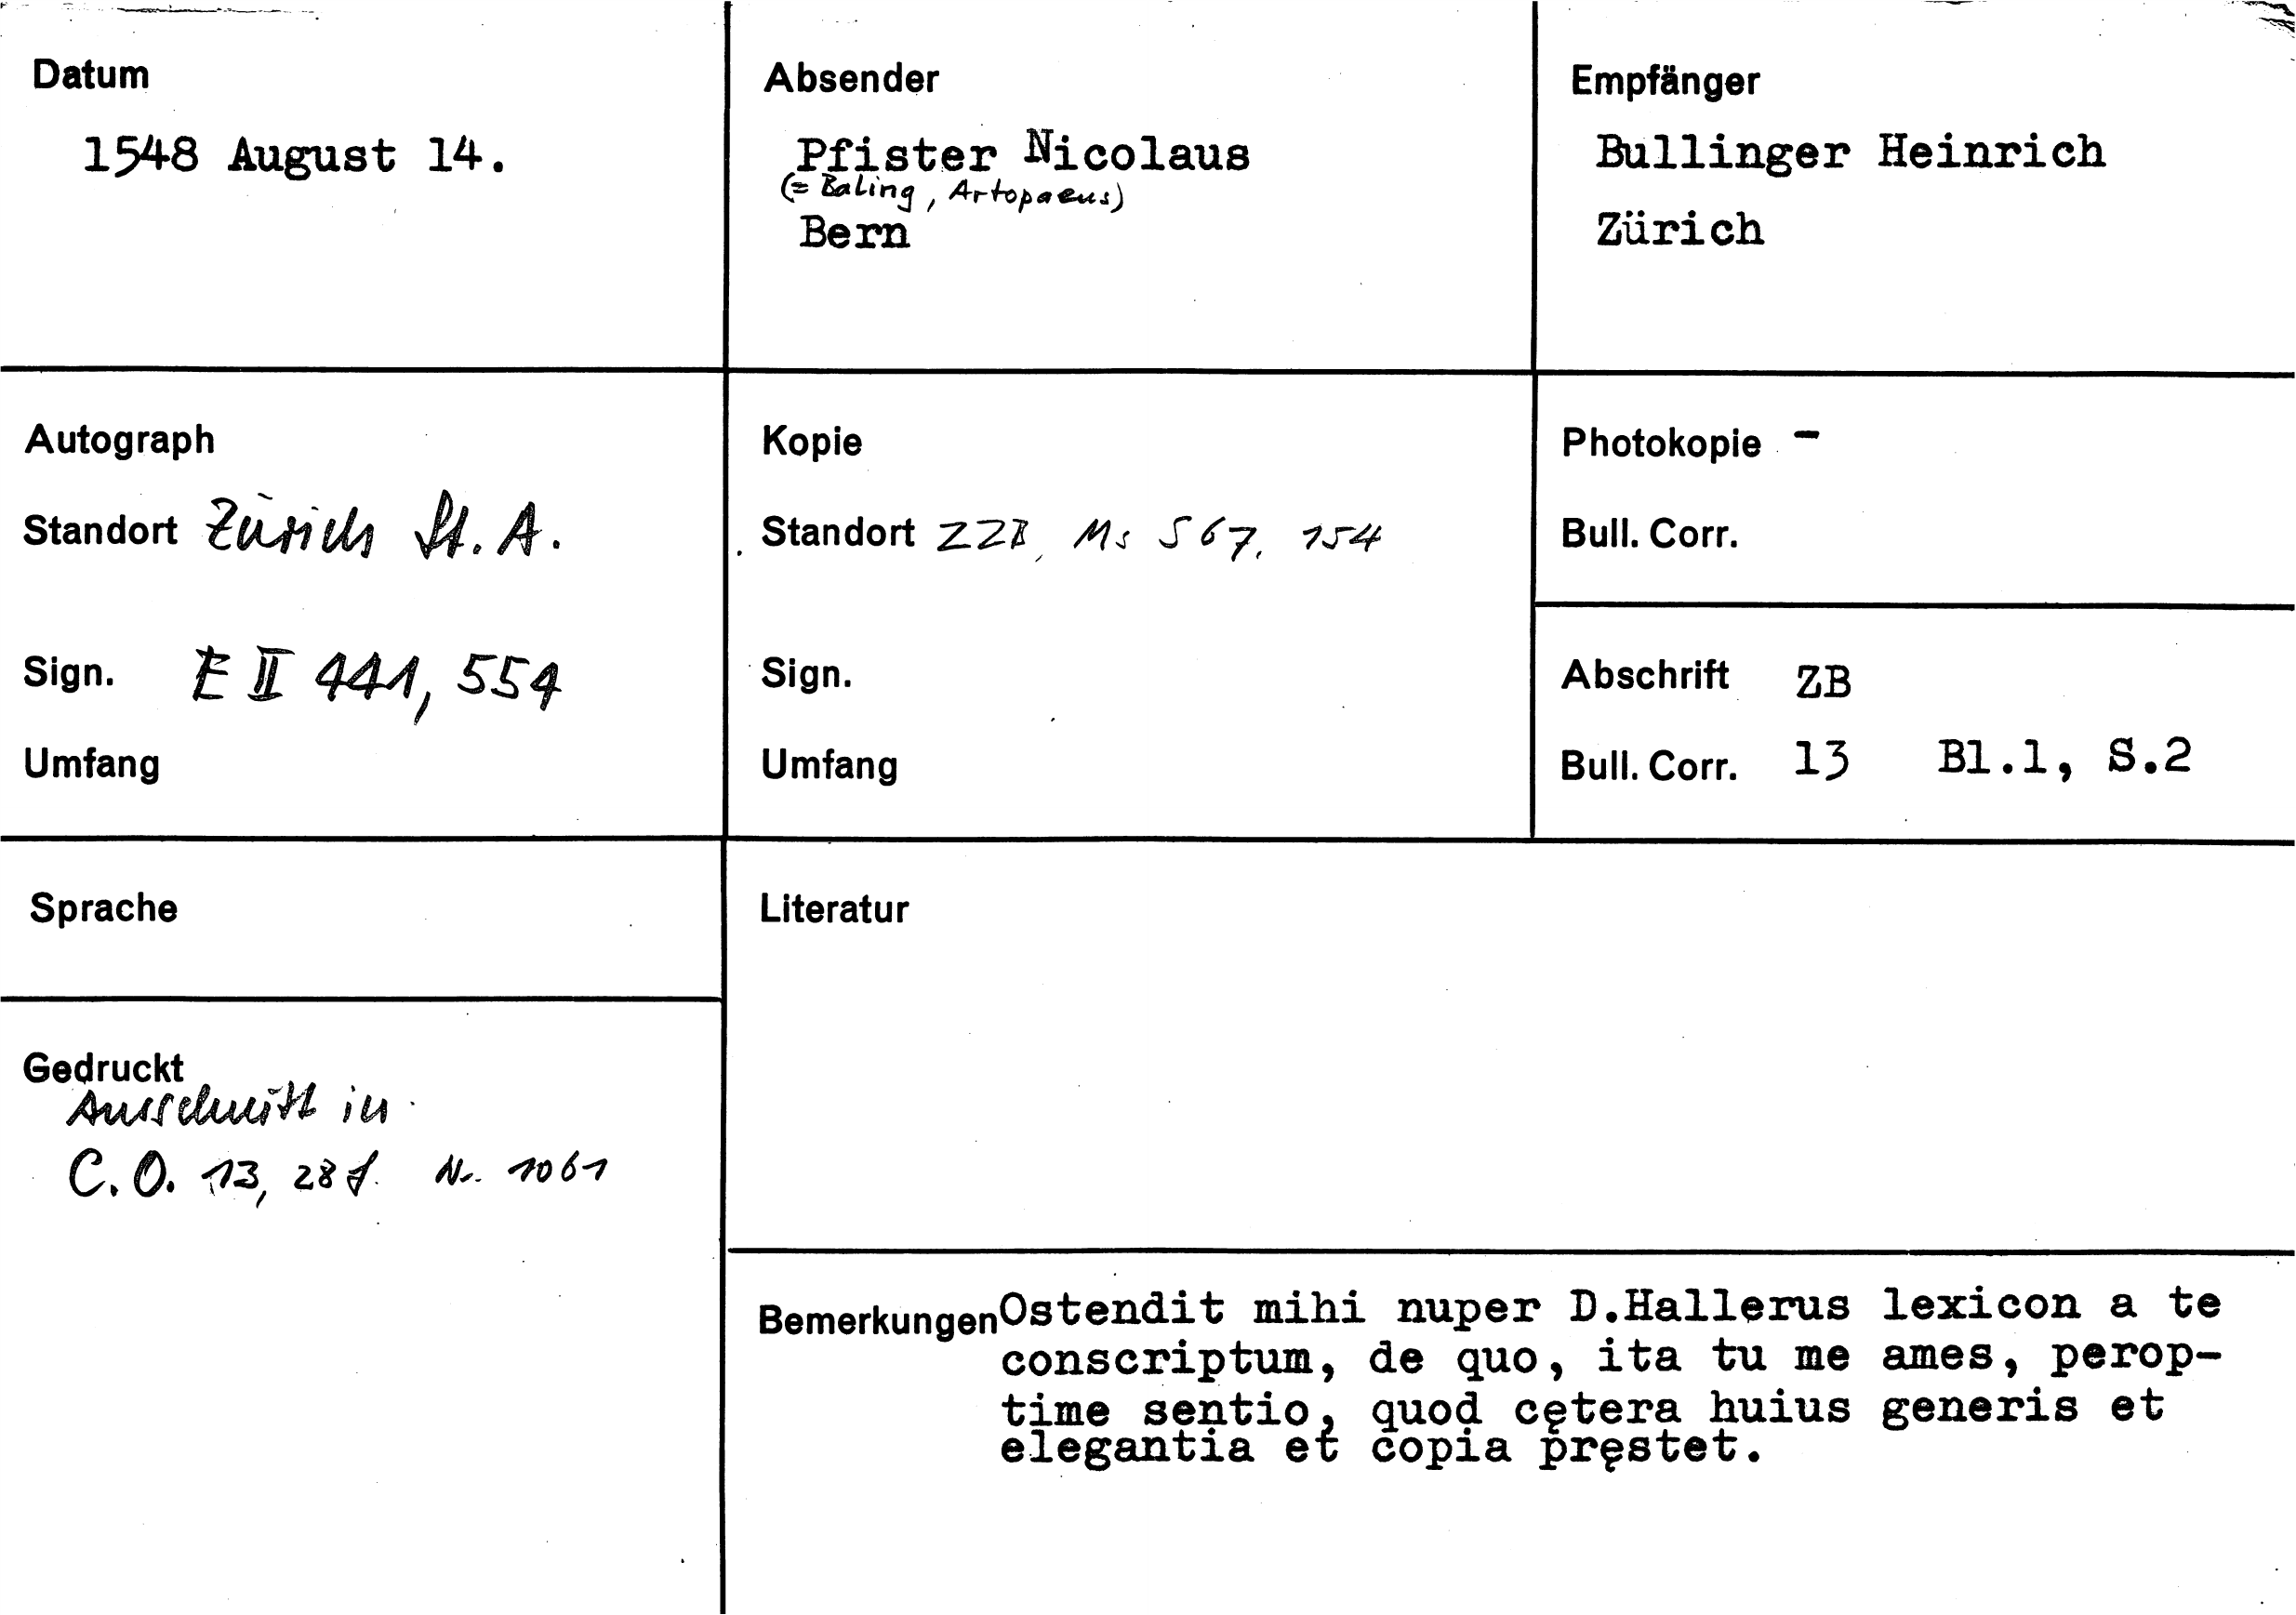 Datum
1548 August 14.
Absender
Pfister Nicolaus
(= Baling, Artopaeus)
Bern
Empfänger
Bullinger Heinrich
Zürich
Autograph
Standort Zürich St. A.
Sign. E II 441, 554
Umfang
Kopie
Standort ZZB, Ms S 67, 154
Sign.
Umfang
Photokopie -
Bull. Corr.
Abschrift ZB
Bull. Corr. 13 Bl.1, S.2
Sprache
Gedruckt
Ausschnitt in
C.O. 13, 28f. Nr. 1061
Literatur
Bemerkungen Ostendit mihi nuper D.Hallerus lexicon a te
conscriptum, de quo, ita tu me ames, perop-
time sentio, quod cętera huius generis et
elegantia et copia pręstet.